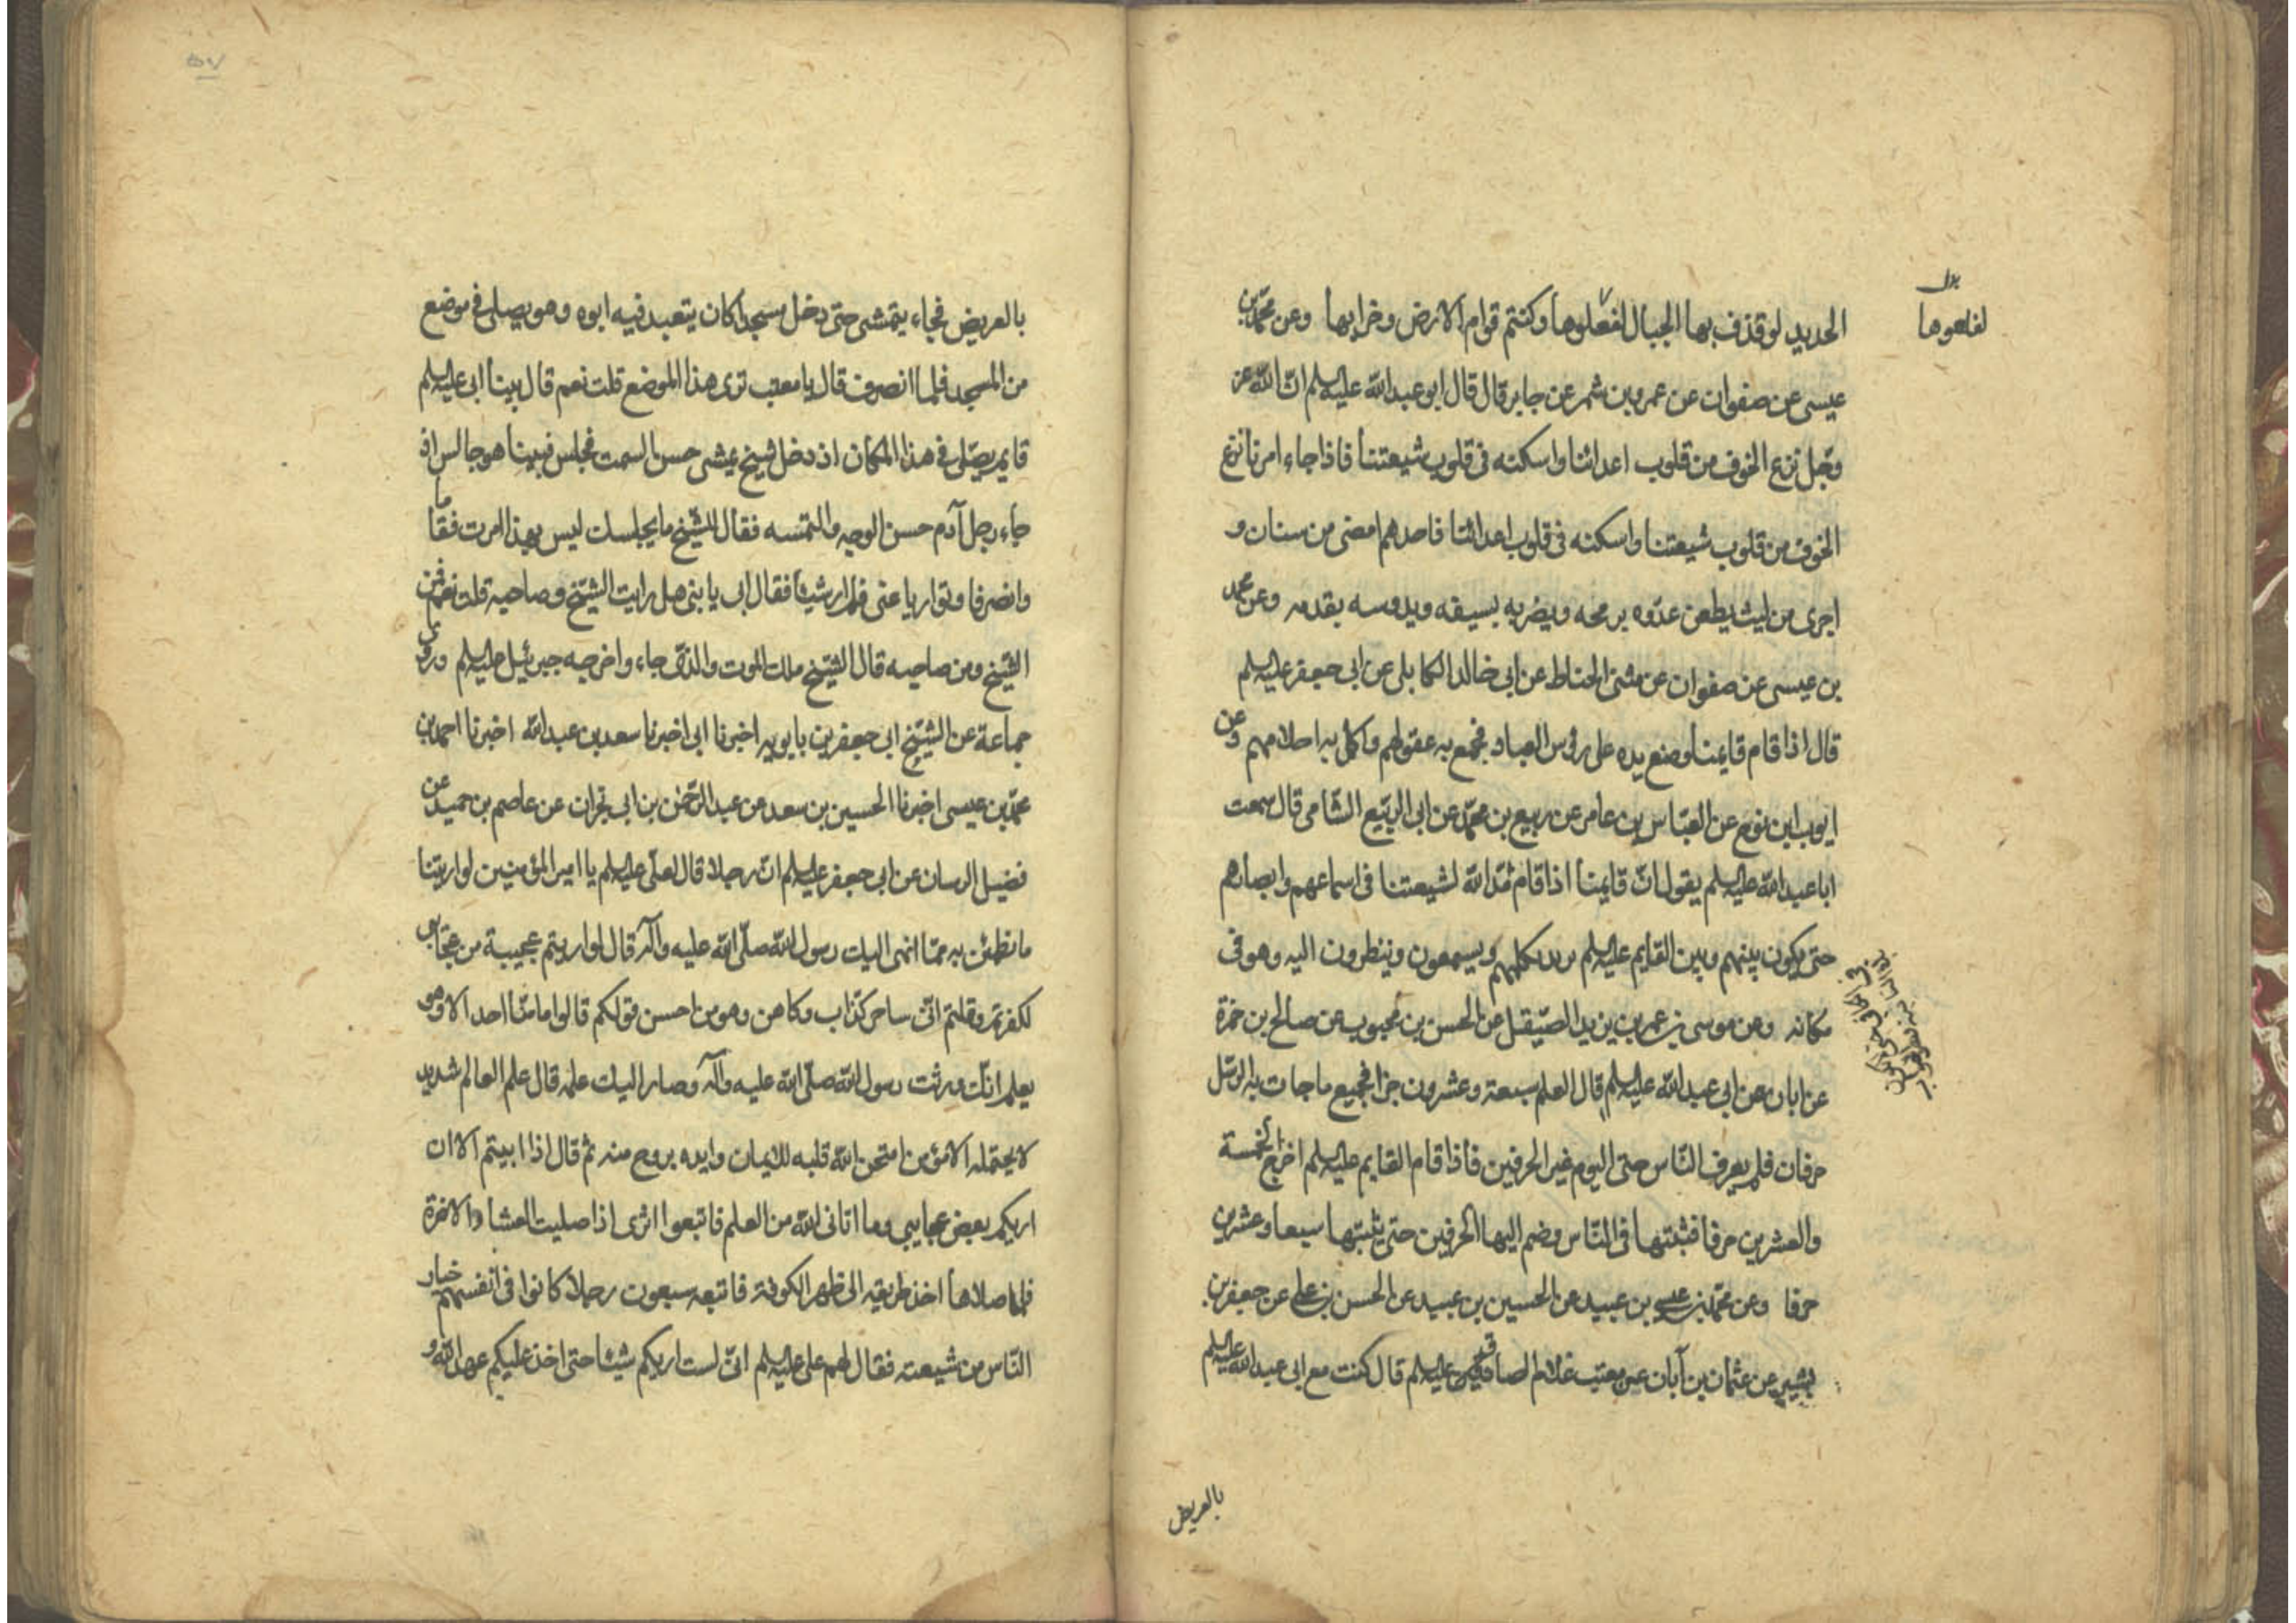 الحديد لو قذف بها الجبال لفعلوها وكنتم قوام الارض وخرابها وعن محمد بن
لفلعوها
عيسى عن صفوان عن عمرو بن شمر عن جابر قال قال ابو عبد الله عليه السلم ان الله عز
وجل نزع الخوف من قلوب اعدائنا واسكنه فى قلوب شيعتنا فاذا جاء امرنا نزع
الخوف من قلوب شيعتنا واسكنه فى قلوب اعدائنا فاحدهم امضى من سنان و
اجرى من ليث يطعن عدوه برمحه ويضربه بسيفه ويدوسه بقدمه وعن محمد
بن عيسى عن صفوان عن مثنى الحناط عن ابى خالد الكابلى عن ابى جعفر عليه السلم
قال اذا قام قايمنا وضع يده على رؤس العباد فجمع به عقولهم واكمل به احلامهم وعن
ايوب ابن نوح عن العباس بن عامر عن ربيع بن محمد عن ابى الربيع الشامى قال سمعت
ابا عبد الله عليه السلم يقول ان قايمنا اذا قام مد الله لشيعتنا فى اسماعهم وابصارهم
حتى يكون بينهم وبين القايم عليه السلم بريد يكلمهم ويسمعون وينظرون اليه وهو فى
مكانه وعن موسى بن عمر بن يزيد الصيقل عن الحسن بن محبوب عن صالح بن حمزة
عن ابان عن ابى عبد الله عليه السلم قال العلم سبعة وعشرون جزا فجميع ما جات به الرسل
حرفان فلم يعرف الناس حتى اليوم غير الحرفين فاذا قام القايم عليه السلم اخرج الخمسة
والعشرين حرفا فبثتها فى الناس وضم اليها الحرفين حتى يثبتها سبعا وعشرين
حرفا وعن محمد بن عيسى بن عبيد عن الحسين بن عبيد عن الحسن بن على عن جعفر بن
بشير عن عثمان بن آبان عن معتب غلام الصادق عليه السلم قال كنت مع ابى عبد الله عليه السلم
بالعريض
بالعريض فجاء يتمشى حتى دخل مسجدا كان يتعبد فيه ابوه وهو يصلى فى موضع
من المسجد فلما انصرف قال يا معتب ترى هذا الموضع قلت نعم قال بينا ابى عليه السلم
قايم يصلى فى هذا المكان اذ دخل شيخ يمشى حسن السمت فجلس فبينا هو جالس اذ
جاء رجل آدم حسن الوجه والتمسه فقال للشيخ ما يجلسك ليس بهذا امرت فقاما
وانصرفا وتواريا عنى فلم ار شيئا فقال ابى يا بنى هل رايت الشيخ وصاحبه قلت نعم فمن
الشيخ ومن صاحبه قال الشيخ ملك الموت والذى جاء واخرجه جبرئيل عليه السلم وروى
جماعة عن الشيخ ابى جعفر بن بابويه اخبرنا ابى اخبرنا سعد بن عبد الله اخبرنا احمد بن
محمد بن عيسى اخبرنا الحسين بن سعد عن عبد الرحمن بن ابى نجران عن عاصم بن حميد عن
فضيل الرسان عن ابى جعفر عليه السلم ان رجلا قال لعلى عليه السلم يا امير المؤمنين لو اريتنا
ما نطمئن به مما انهى اليك رسول الله صلى الله عليه وآله قال لو اريتم عجيبة من عجايبى
لكفرتم وقلتم انى ساحر كذاب وكاهن وهو من احسن قولكم قالوا ما منا احد الا وهو
يعلم انك ورثت رسول الله صلى الله عليه وآله وصار اليك علمه قال علم العالم شديد
لا يحتمله الا مؤمن امتحن الله قلبه للايمان وايده بروح منه ثم قال اذا ابيتم الا ان
اريكم بعض عجايبى وما اتانى الله من العلم فاتبعوا اثرى اذا صليت العشاء الاخرة
فلما صلاها اخذ طريقه الى ظهر الكوفة فاتبعه سبعون رجلا كانوا فى انفسهم خيار
الناس من شيعته فقال لهم على عليه السلم انى لست اريكم شيئا حتى اخذ عليكم عهد الله و